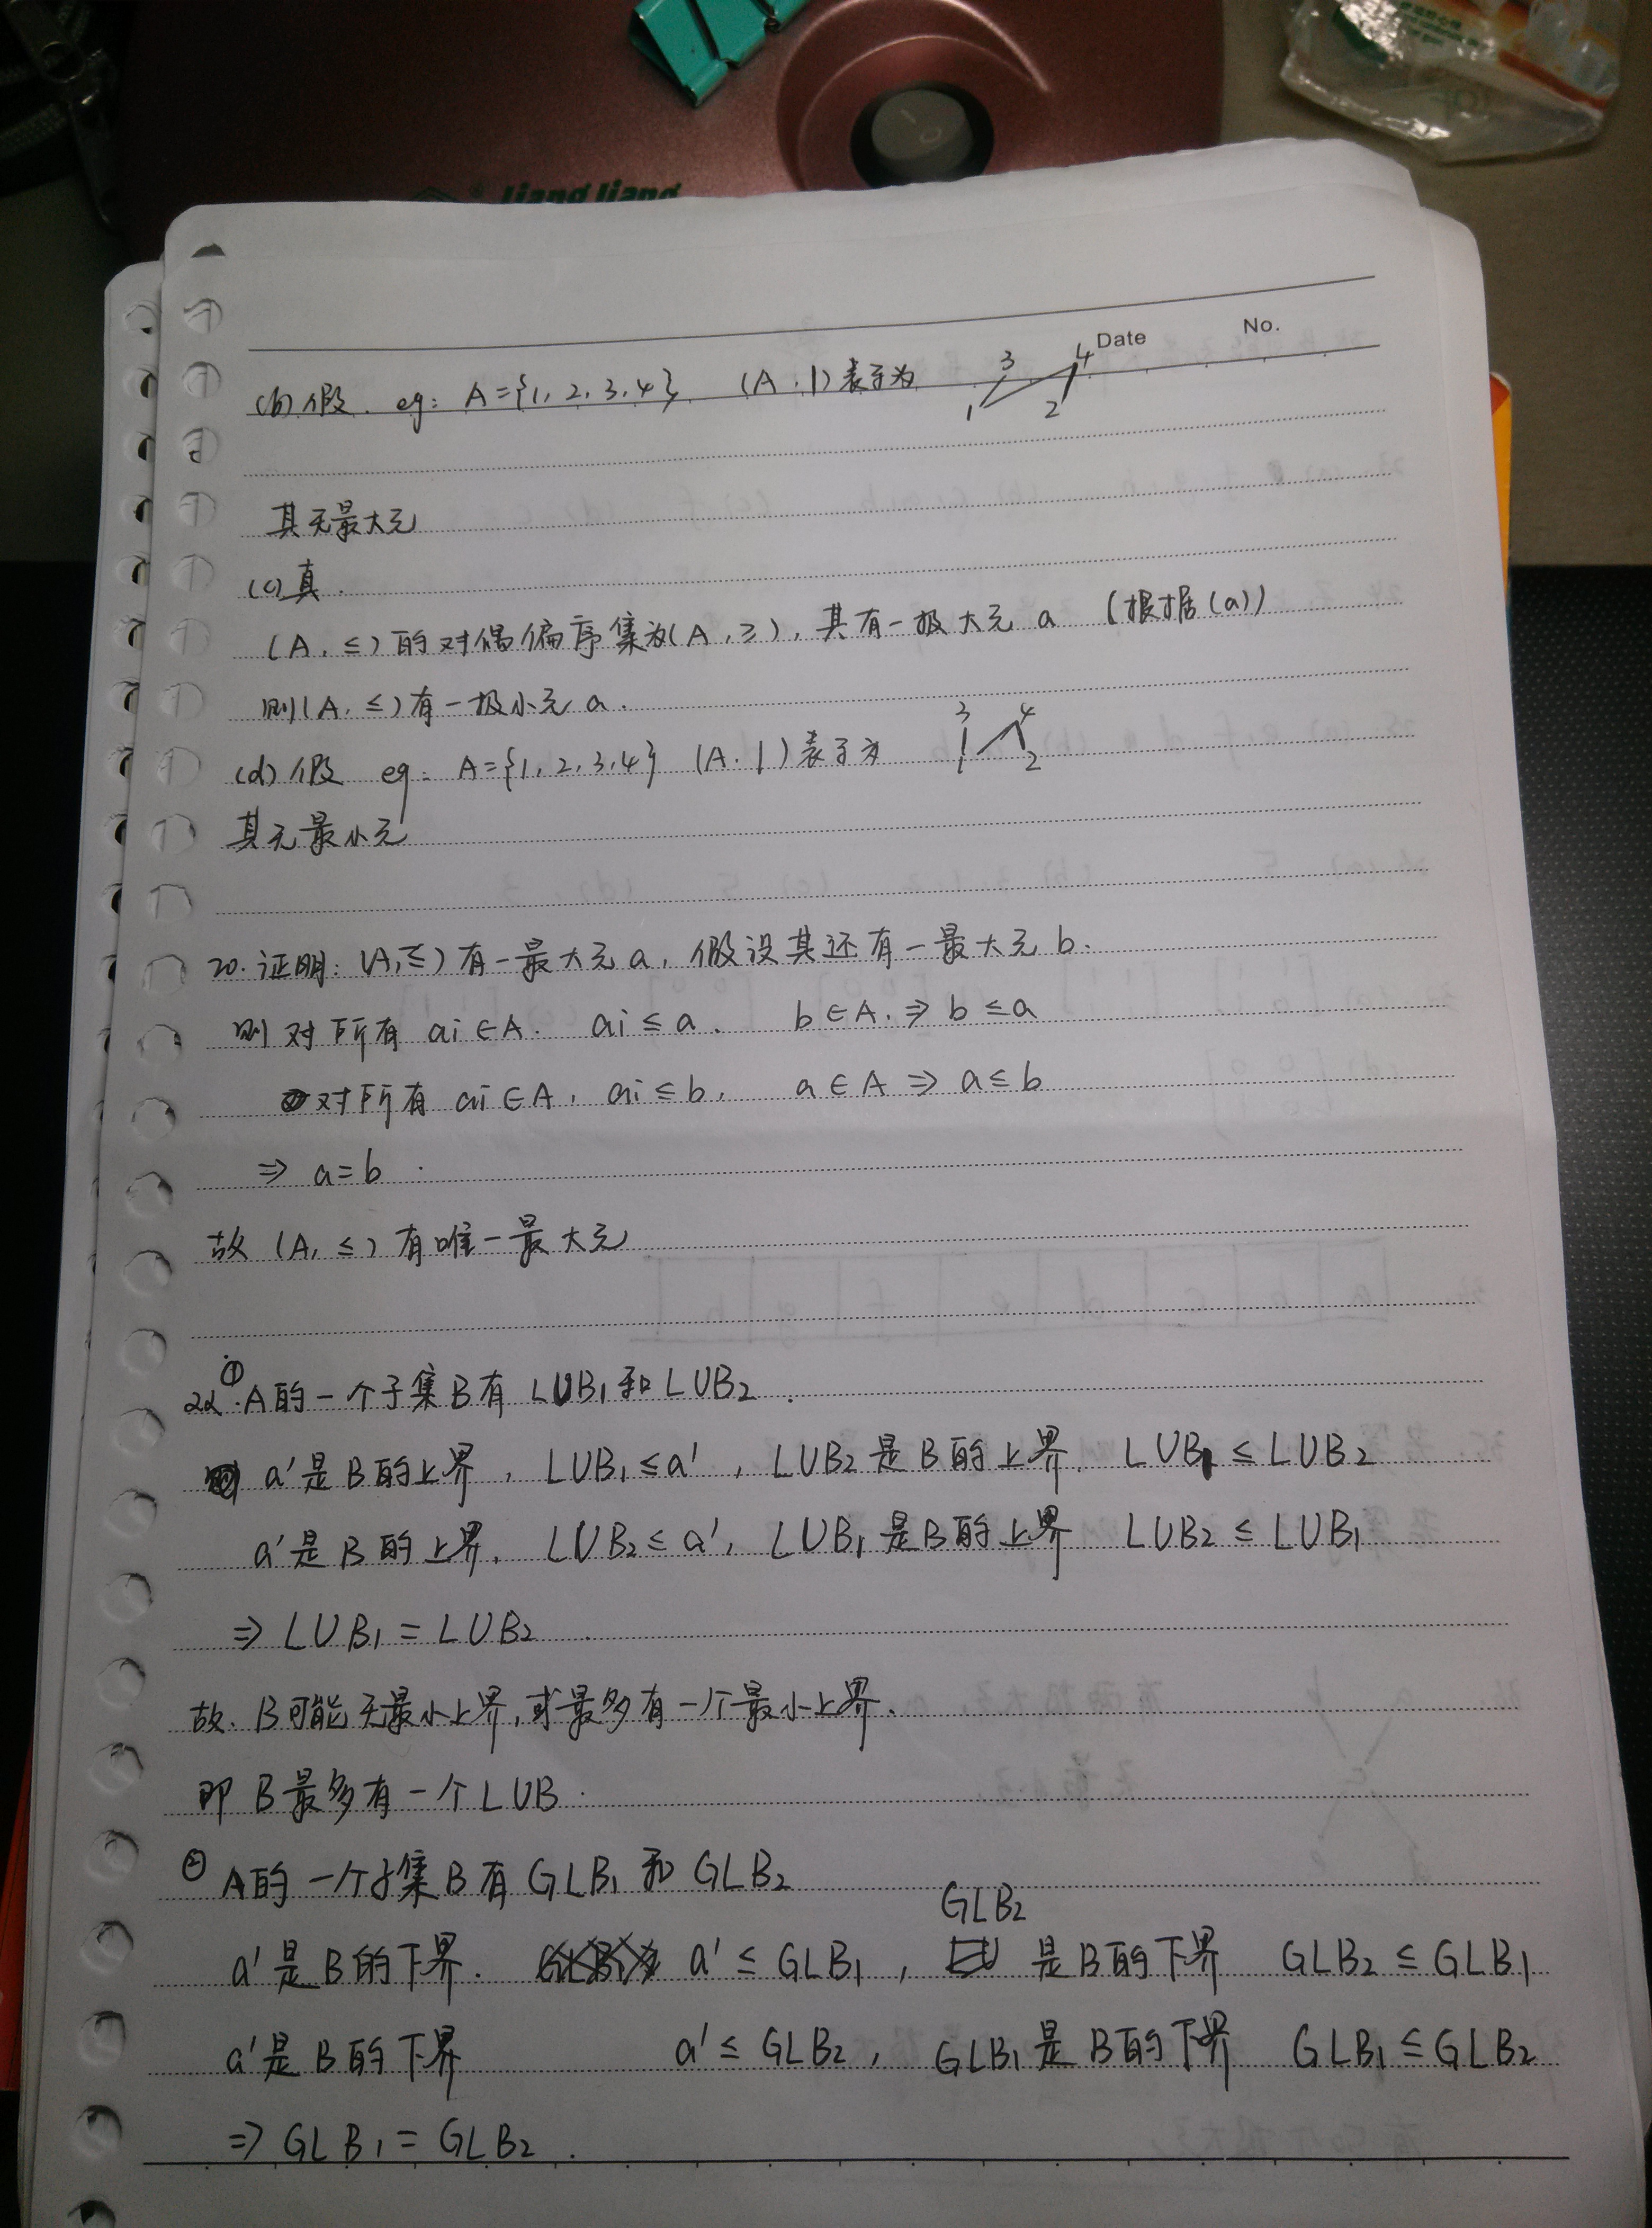 liangliang
Date No.
(b) 假. eg: A={1, 2, 3, 4} (A, |) 表示为 3 4 1 2
其无最大元
(c) 真.
(A, ≤) 的对偶偏序集为(A, ≥), 其有一极大元 a (根据(a))
则(A, ≤) 有一极小元 a.
(d) 假 eg: A={1, 2, 3, 4} (A, |) 表示为 3 4 1 2
其无最小元
20. 证明: (A, ≤) 有一最大元 a, 假设其还有一最大元 b.
则对所有 ai∈A. ai≤a. b∈A. ⇒ b≤a
对所有 ai∈A, ai≤b, a∈A ⇒ a≤b
⇒ a=b.
故 (A, ≤) 有唯一最大元
22. ① A的一个子集B有 LUB₁ 和 LUB₂.
a'是B的上界, LUB₁≤a', LUB₂是B的上界. LUB₁≤LUB₂
a'是B的上界. LUB₂≤a', LUB₁是B的上界 LUB₂≤LUB₁
⇒ LUB₁=LUB₂.
故. B可能无最小上界,或最多有一个最小上界.
即 B最多有一个LUB.
② A的一个子集B有 GLB₁ 和 GLB₂
a'是B的下界. a'≤GLB₁, GLB₂ 是B的下界 GLB₂≤GLB₁
a'是B的下界 a'≤GLB₂, GLB₁是B的下界 GLB₁≤GLB₂
⇒ GLB₁=GLB₂.